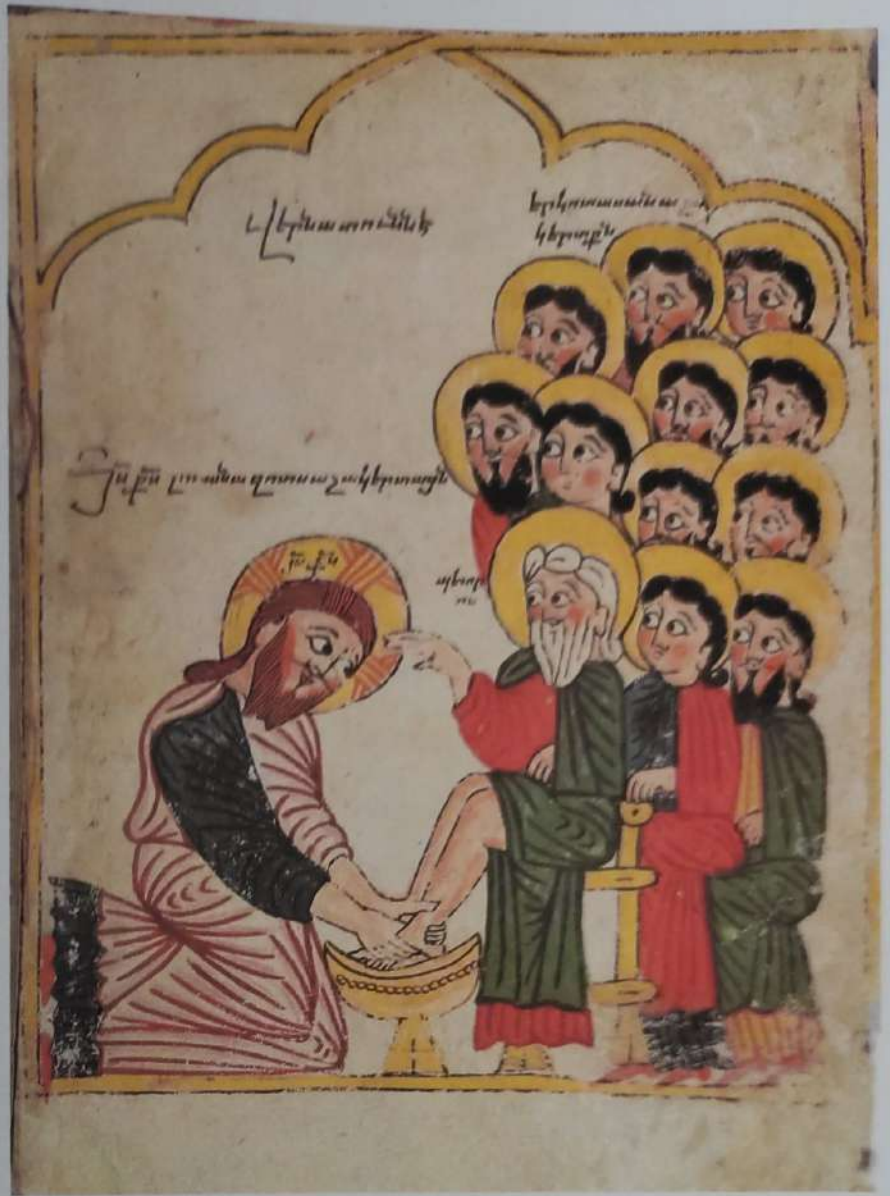 Վերնատունն է
երկոտասանս աշա
կերտքն
Յս Քս լուանա զոտս աշակերտացն
Յս Քս
պետր
ոս